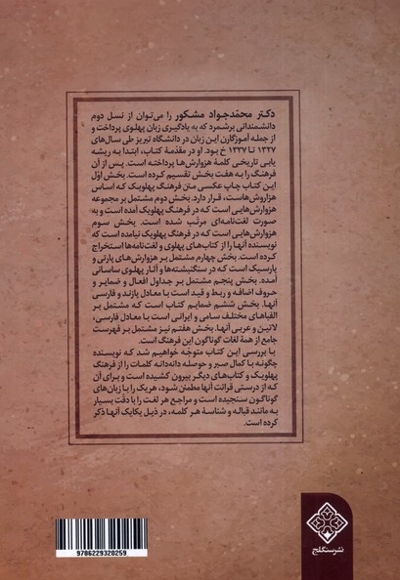 دکتر محمّدجواد مشکور را می‌توان از نسل دوم
دانشمندانی برشمرد که به یادگیری زبان پهلوی پرداخت و
از جمله آموزگاران این زبان در دانشگاه تبریز طی سال‌های
۱۳۲۷ تا ۱۳۳۷ خ بود. او در مقدّمهٔ کتاب، ابتدا به ریشه
یابی تاریخی کلمهٔ هزوارش‌ها پرداخته است. پس از آن
فرهنگ را به هفت بخش تقسیم کرده است. بخش اوّل
این کتاب چاپ عکسی متن فرهنگ پهلویک که اساس
هزاروش‌هاست، قرار دارد. بخش دوم مشتمل بر مجموعه
هزوارش‌هایی است که در فرهنگ پهلویک آمده است و به
صورت لغت‌نامه‌ای مرتّب شده است. بخش سوم
هزوارش‌هایی است که در فرهنگ پهلویک نیامده است که
نویسنده آنها را از کتاب‌های پهلوی و لغت‌نامه‌ها استخراج
کرده است. بخش چهارم مشتمل بر هزوارش‌های پارتی و
پارسیک است که در سنگنبشته‌ها و آثار پهلوی ساسانی
آمده. بخش پنجم مشتمل بر جداول افعال و ضمایر و
حروف اضافه و ربط و قید است با معادل پازند و فارسی
آنها. بخش ششم ضمایم کتاب است که مشتمل بر
الفباهای مختلف سامی و ایرانی است با معادل فارسی،
لاتین و عربی آنها. بخش هفتم نیز مشتمل بر فهرست
جامع از همهٔ لغات گوناگون این فرهنگ است.
با بررسی این کتاب متوجّه خواهیم شد که نویسنده
چگونه با کمال صبر و حوصله دانه‌دانه کلمات را از فرهنگ
پهلویک و کتاب‌های دیگر بیرون کشیده است و برای آن
که از درستی قرائت آنها مطمئن شود، هریک را با زبان‌های
گوناگون سنجیده است و مراجع هر لغت را با دقّت بسیار
به مانند قباله و شناسهٔ هر کلمه، در ذیل یکایک آنها ذکر
کرده است.
نشر سنگلج
9786229320259